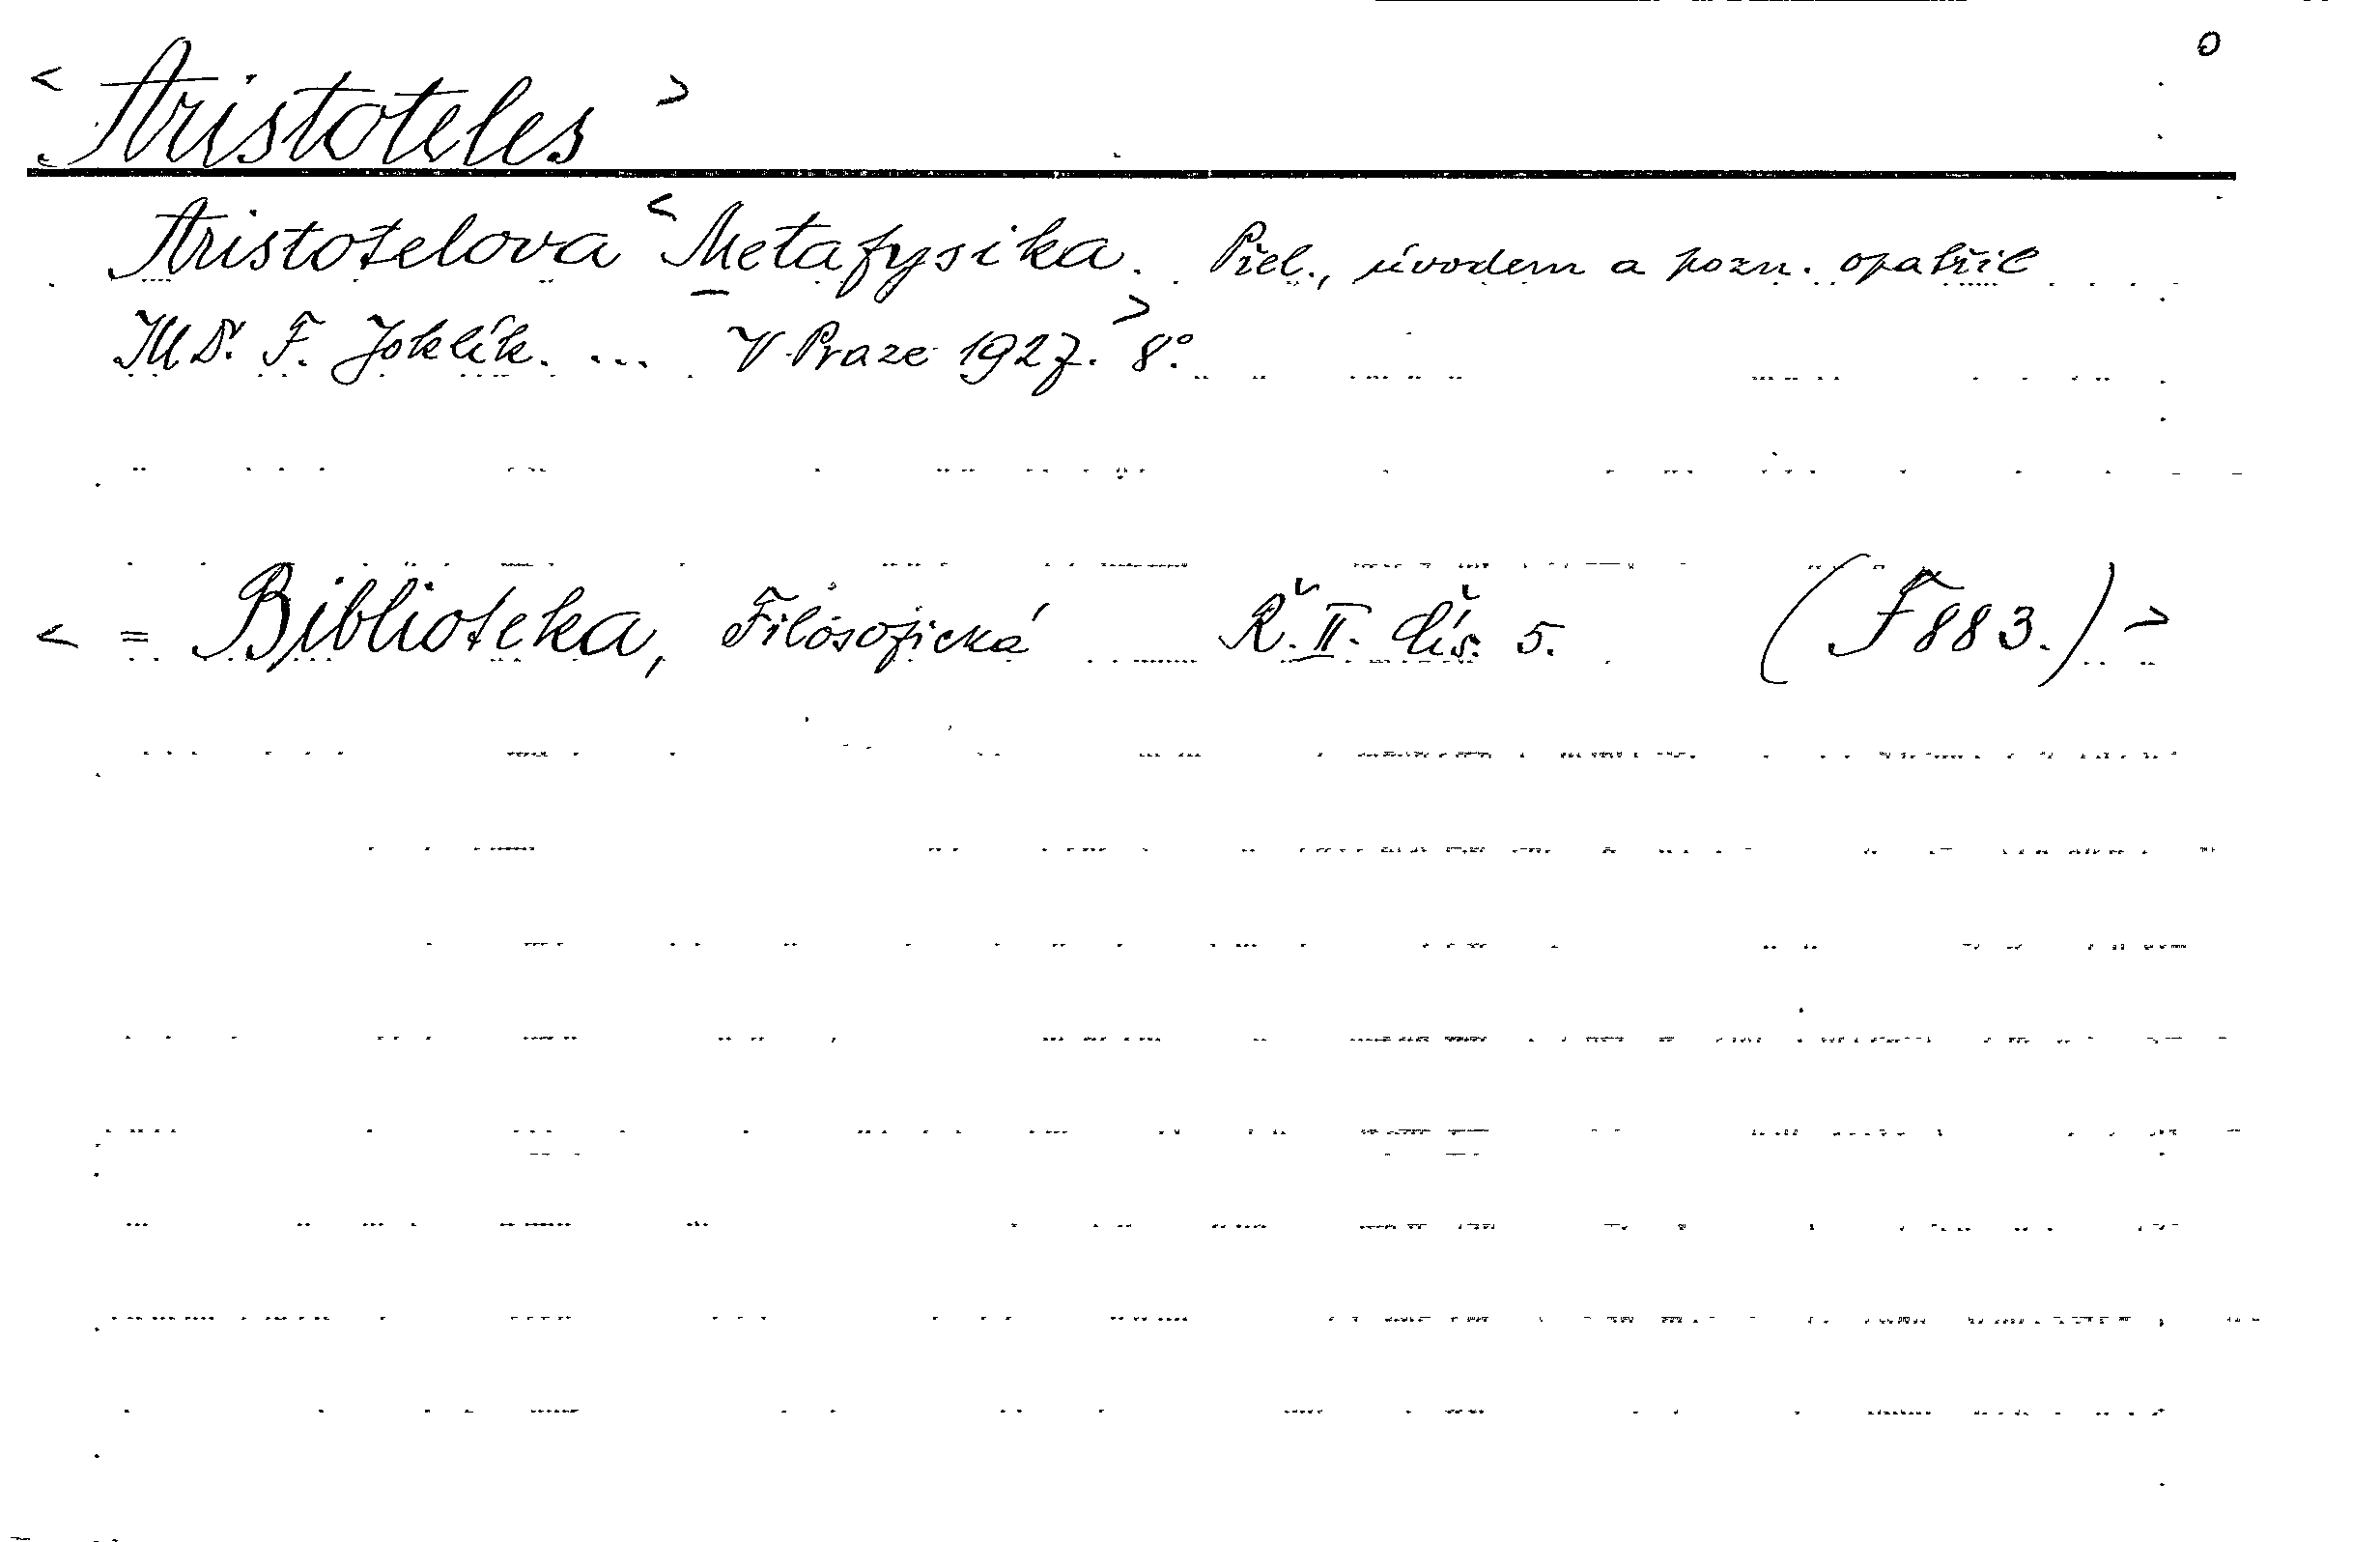 < Aristoteles >
Aristotelova < Metafysika. Přel., úvodem a pozn. opatřil
JUDr. F. Joklík. ... V Praze 1927. > 8°.
< = Biblioteka, Filosofická Ř. II. čís. 5. (F 883.) >